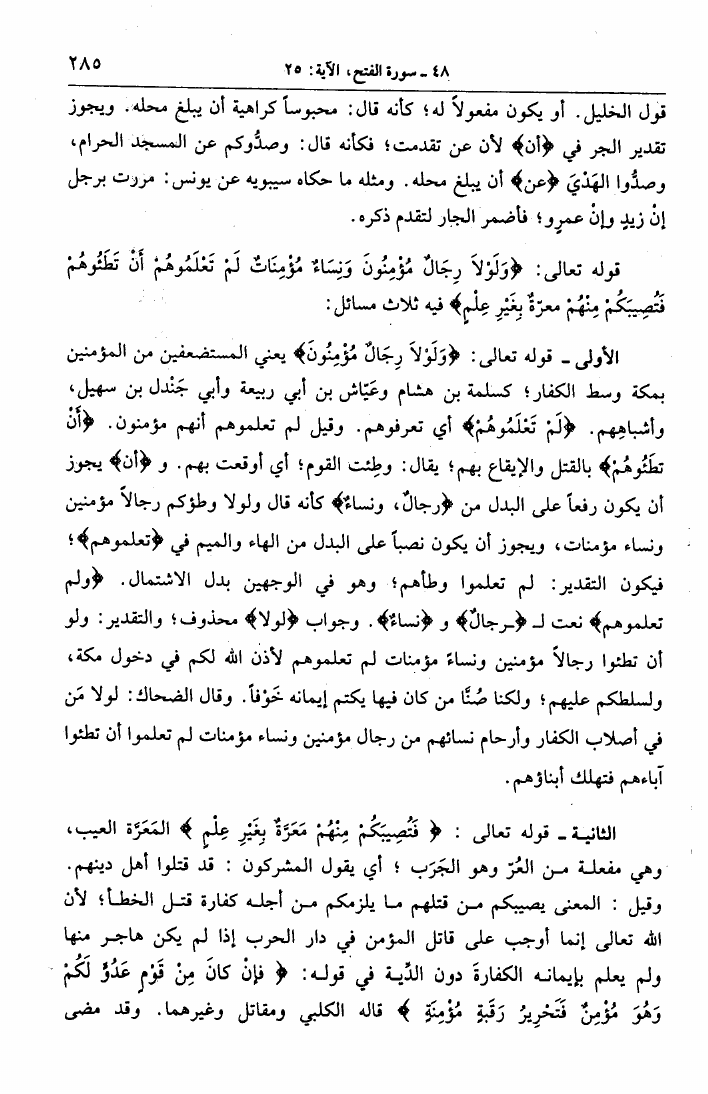 ٤٨ ـ سورة الفتح، الآية: ٢٥
٢٨٥
قول الخليل. أو يكون مفعولاً له؛ كأنه قال: محبوساً كراهية أن يبلغ محله. ويجوز
تقدير الجر في ﴿أن﴾ لأن عن تقدمت؛ فكأنه قال: وصدُّوكم عن المسجد الحرام،
وصدُّوا الهَدْيَ ﴿عن﴾ أن يبلغ محله. ومثله ما حكاه سيبويه عن يونس: مررت برجل
إنْ زيدٍ وإنْ عمرٍو؛ فأضمر الجار لتقدم ذكره.
قوله تعالى: ﴿وَلَوْلاَ رِجَالٌ مُؤْمِنُونَ وَنِسَاءٌ مُؤْمِنَاتٌ لَمْ تَعْلَمُوهُمْ أَنْ تَطَئُوهُمْ
فَتُصِيبَكُمْ مِنْهُمْ معرّةٌ بِغَيْرِ عِلْمٍ﴾ فيه ثلاث مسائل:
الأولى ـ قوله تعالى: ﴿وَلَوْلاَ رِجَالٌ مُؤْمِنُونَ﴾ يعني المستضعفين من المؤمنين
بمكة وسط الكفار؛ كسلمة بن هشام وعَيّاش بن أبي ربيعة وأبي جَنْدل بن سهيل،
وأشباهِهم. ﴿لَمْ تَعْلَمُوهُمْ﴾ أي تعرفوهم. وقيل لم تعلموهم أنهم مؤمنون. ﴿أَنْ
تَطَئُوهُمْ﴾ بالقتل والإيقاع بهم؛ يقال: وطِئت القوم؛ أي أوقعت بهم. و ﴿أن﴾ يجوز
أن يكون رفعاً على البدل من ﴿رجالٌ، ونساءٌ﴾ كأنه قال ولولا وطؤكم رجالاً مؤمنين
ونساء مؤمنات، ويجوز أن يكون نصباً على البدل من الهاء والميم في ﴿تعلموهم﴾؛
فيكون التقدير: لم تعلموا وطأهم؛ وهو في الوجهين بدل الاشتمال. ﴿ولم
تعلموهم﴾ نعت لـ ﴿ـرجالٌ﴾ و ﴿نساءٌ﴾. وجواب ﴿لولا﴾ محذوف؛ والتقدير: ولو
أن تطئوا رجالاً مؤمنين ونساءً مؤمنات لم تعلموهم لأذن الله لكم في دخول مكة،
ولسلطكم عليهم؛ ولكنا صُنَّا من كان فيها يكتم إيمانه خَوْفاً. وقال الضحاك: لولا مَن
في أصلاب الكفار وأرحام نسائهم من رجال مؤمنين ونساء مؤمنات لم تعلموا أن تطئوا
آباءهم فتهلك أبناؤهم.
الثانية ـ قوله تعالى : ﴿ فَتُصِيبَكُمْ مِنْهُمْ مَعَرَّةٌ بِغَيْرِ عِلْمٍ ﴾ المَعَرَّة العيب،
وهي مفعلة من العُرّ وهو الجَرَب ؛ أي يقول المشركون : قد قتلوا أهل دينهم.
وقيل : المعنى يصيبكم من قتلهم ما يلزمكم من أجله كفارة قتل الخطأ؛ لأن
الله تعالى إنما أوجب على قاتل المؤمن في دار الحرب إذا لم يكن هاجر منها
ولم يعلم بإيمانه الكفارةَ دون الدِّية في قوله: ﴿ فَإِنْ كَانَ مِنْ قَوْمٍ عَدُوٍّ لَكُمْ
وَهُوَ مُؤْمِنٌ فَتَحْرِيرُ رَقَبَةٍ مُؤْمِنَةٍ ﴾ قاله الكلبي ومقاتل وغيرهما. وقد مضى